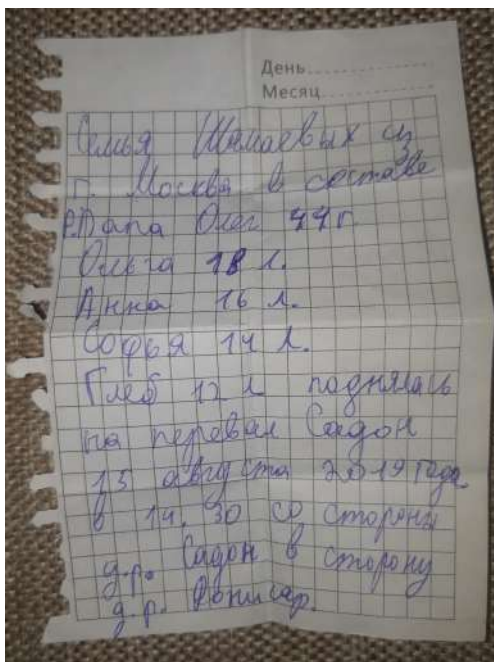 День
Месяц
Семья Шамаевых из
г. Москва в составе
Р. Папа Олег 44 г.
Ольга 18 л.
Анна 16 л.
Софья 14 л.
Глеб 12 л поднялась
на перевал Садон
15 августа 2019 года
в 14.30 со стороны
д.р. Садон в сторону
д.р.